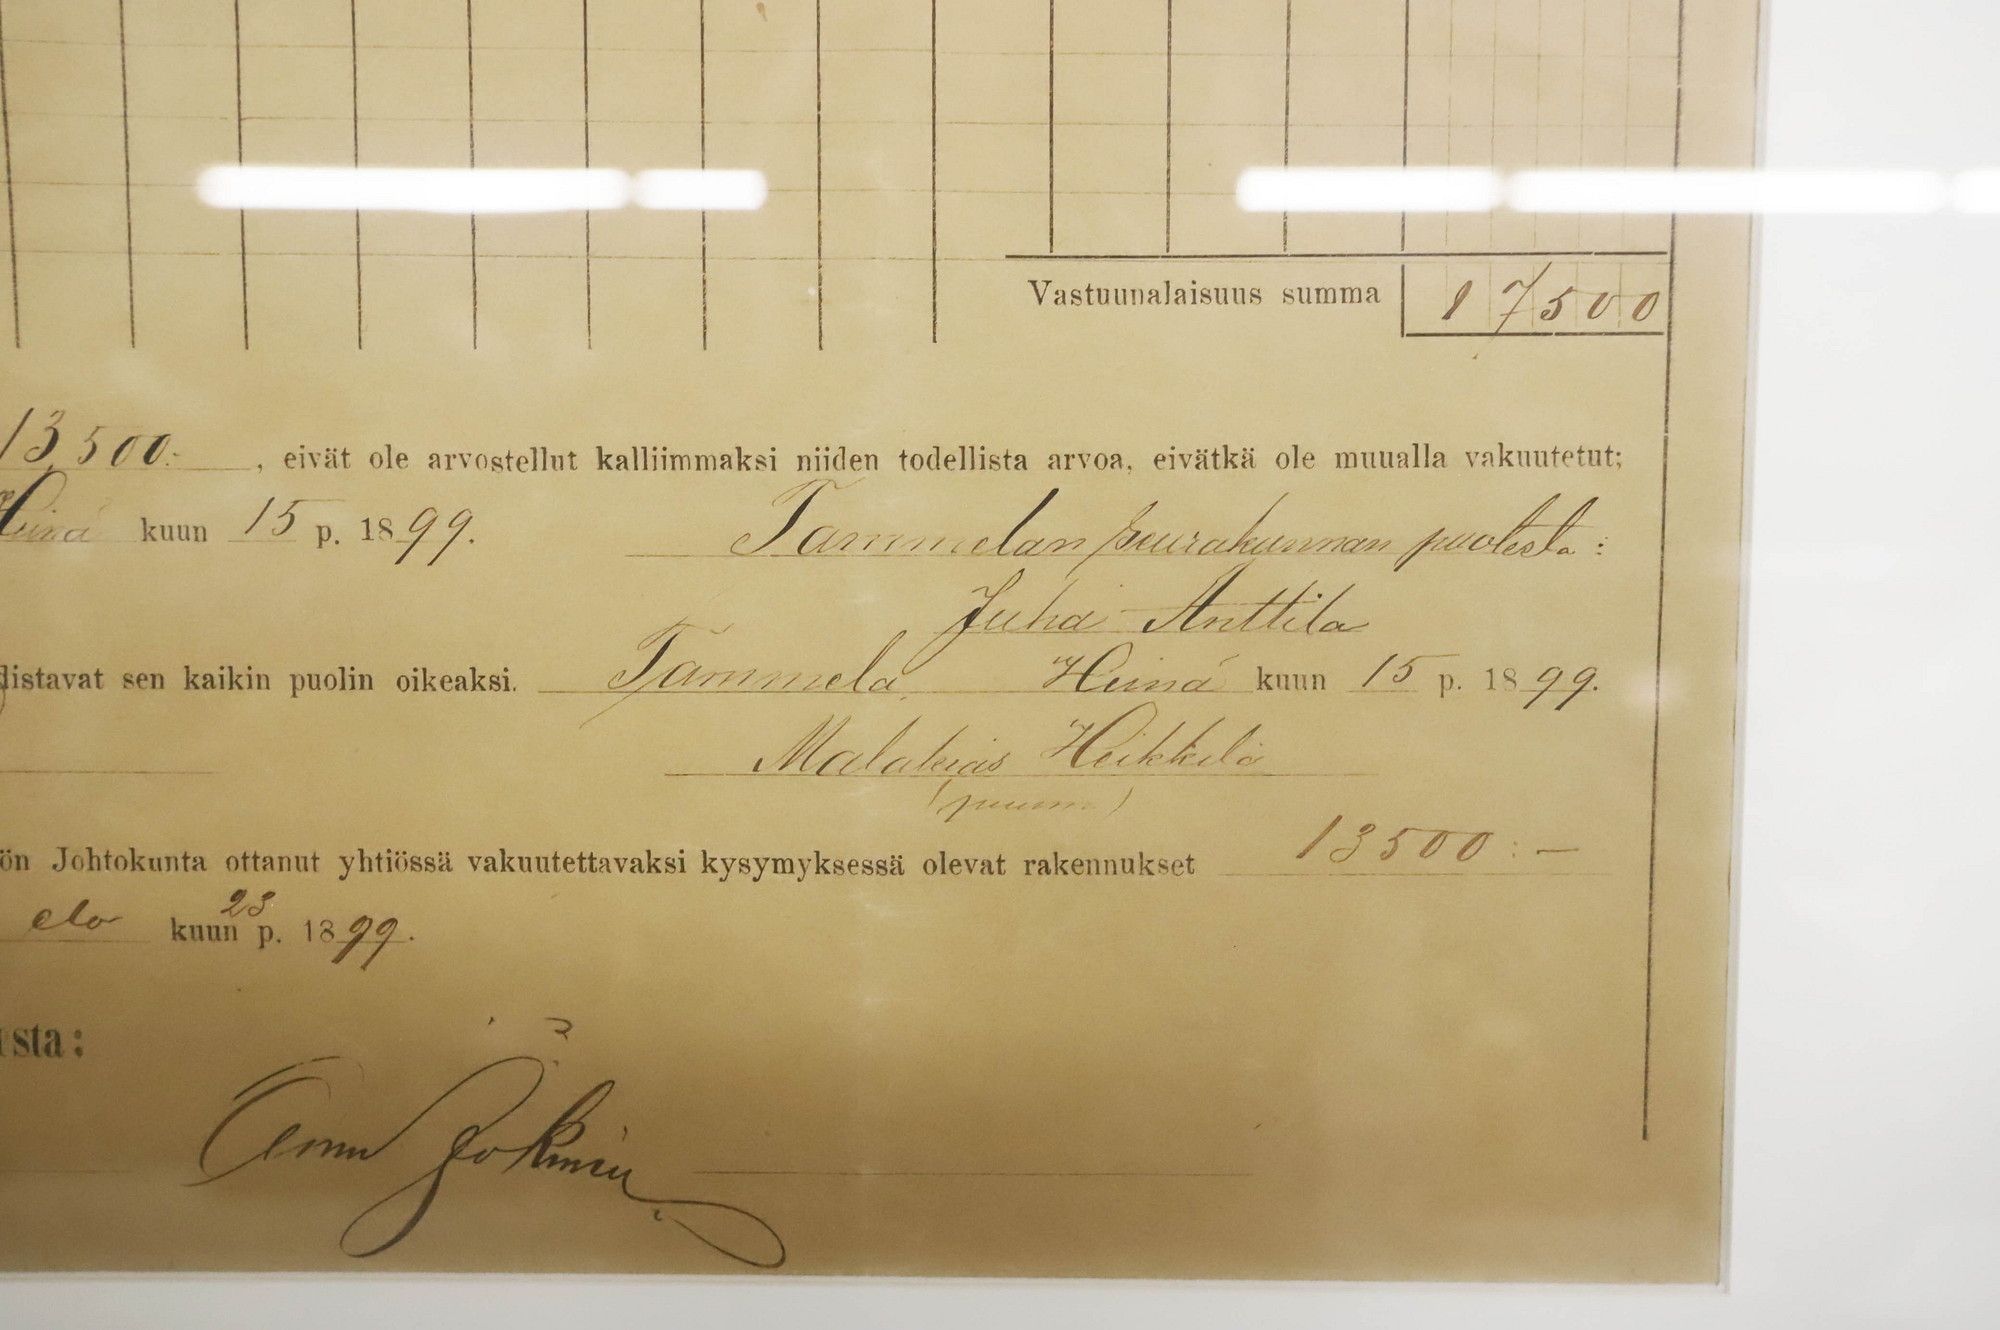 Vastuunalaisuus summa 17500
13,500:- , eivät ole arvostellut kalliimmaksi niiden todellista arvoa, eivätkä ole muualla vakuutetut;
Heinä kuun 15 p. 1899. Tammelan seurakunnan puolesta:
Juha Anttila
distavat sen kaikin puolin oikeaksi. Tammela, Heinä kuun 15 p. 1899.
Malakias Heikkilä
ön Johtokunta ottanut yhtiössä vakuutettavaksi kysymyksessä olevat rakennukset 13500:-
elo kuun 23 p. 1899.
usta: